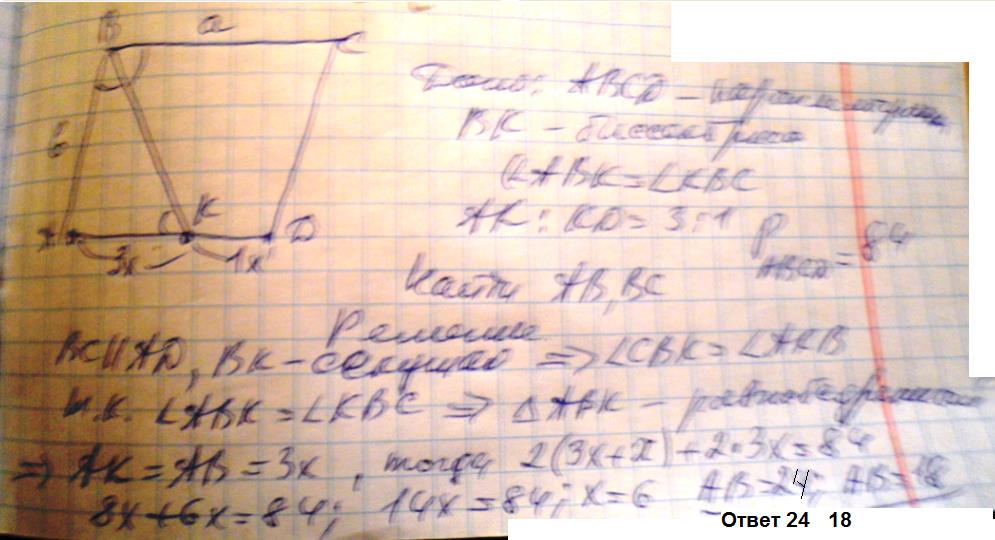 B a C
Дано: ABCD - параллелограм
BK - биссектриса
∠ABK = ∠KBC
AK : KD = 3 : 1
P ABCD = 84
в
K
A D
3x 1x
Найти AB, BC
Решение
BC || AD, BK - секущая => ∠CBK = ∠AKB
т.к. ∠ABK = ∠KBC => △ABK - равнобедренный
=> AK = AB = 3x, тогда 2(3x+x)+2·3x=84
8x+6x=84; 14x=84; x=6 AB=24; AB=18
Ответ 24 18